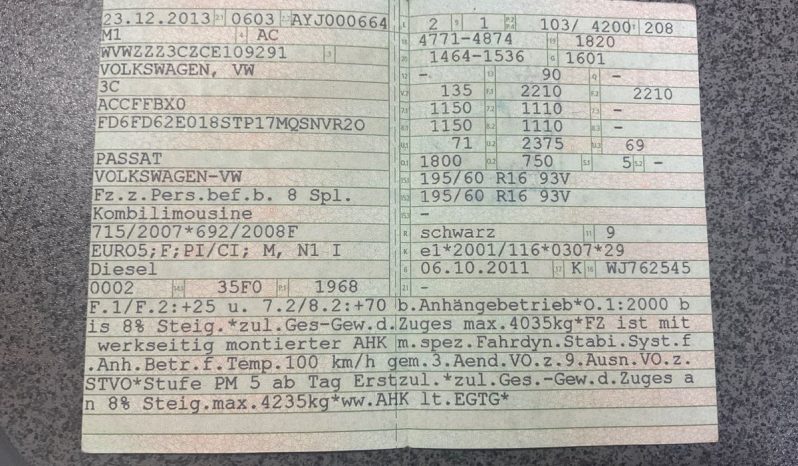 23.12.2013 0603 AYJ000664
M1 AC
WVWZZZ3CZCE109291
VOLKSWAGEN, VW
3C
ACCFFBX0
FD6FD62E018STP17MQSNVR2O
PASSAT
VOLKSWAGEN-VW
Fz.z.Pers.bef.b. 8 Spl.
Kombilimousine
715/2007*692/2008F
EURO5;F;PI/CI; M, N1 I
Diesel
0002 35F0 P.1 1968
L 2 9 1 P.2 P.4 103/ 4200 T 208
18 4771-4874 19 1820
20 1464-1536 G 1601
12 - 13 90 Q -
V.7 135 F.1 2210 F.2 2210
7.1 1150 7.2 1110 -
8.1 1150 8.2 1110 -
U.1 71 U.2 2375 U.3 69
O.1 1800 O.2 750 S.1 5 S.2 -
15.1 195/60 R16 93V
15.2 195/60 R16 93V
15.3 -
R schwarz 11 9
K e1*2001/116*0307*29
6 06.10.2011 17 K 16 WJ762545
21 -
F.1/F.2:+25 u. 7.2/8.2:+70 b.Anhängebetrieb*O.1:2000 b
is 8% Steig.*zul.Ges-Gew.d.Zuges max.4035kg*FZ ist mit
werkseitig montierter AHK m.spez.Fahrdyn.Stabi.Syst.f
.Anh.Betr.f.Temp.100 km/h gem.3.Aend.VO.z.9.Ausn.VO.z.
STVO*Stufe PM 5 ab Tag Erstzul.*zul.Ges.-Gew.d.Zuges a
n 8% Steig.max.4235kg*ww.AHK lt.EGTG*